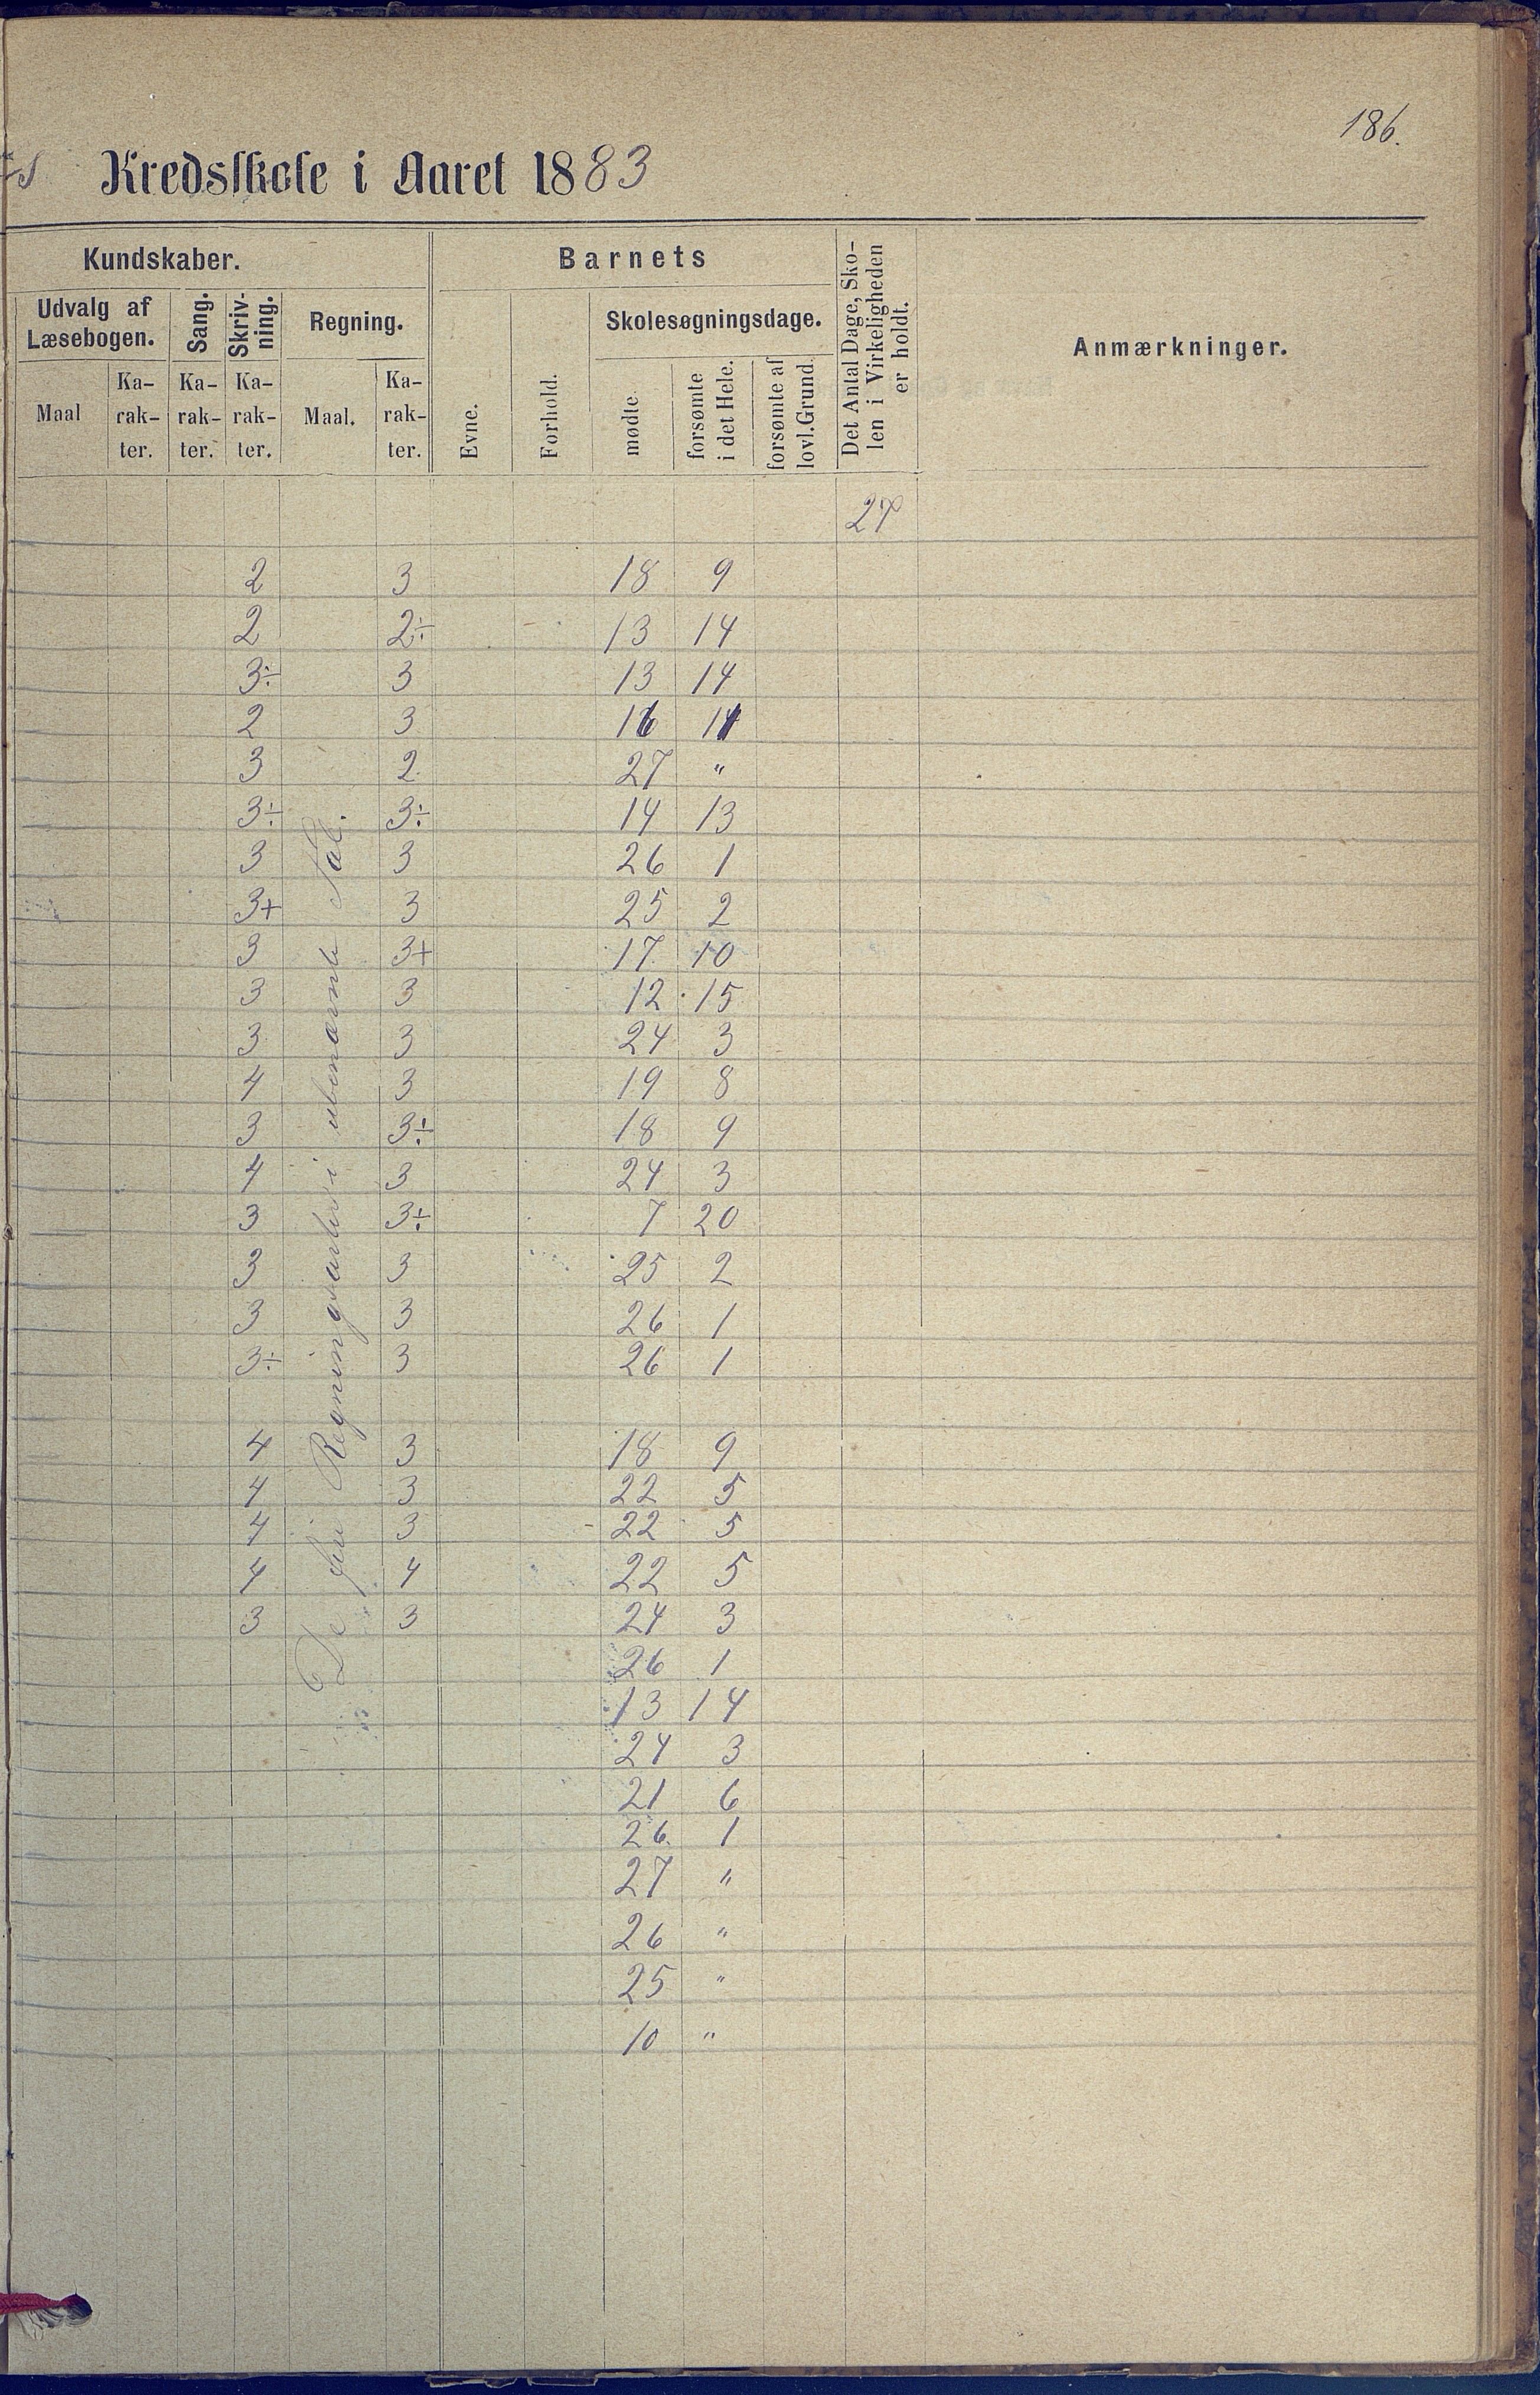 186.
Kredsskole i Aaret 1883
Kundskaber.
Barnets
Det Antal Dage, Sko-
len i Virkeligheden
er holdt.
Anmærkninger.
Udvalg af
Læsebogen.
Sang.
Skriv-
ning.
Regning.
Skolesøgningsdage.
Maal
Ka-
rak-
ter.
Ka-
rak-
ter.
Ka-
rak-
ter.
Maal.
Ka-
rak-
ter.
Evne.
Forhold.
mødte
forsømte
i det Hele.
forsømte af
lovl. Grund.
27
2 3 18 9
2 2÷ 13 14
3÷ 3 13 14
2 3 16 11
3 2 27 "
3÷ 3÷ 14 13
3 3 26 1
3+ 3 25 2
3 3+ 17 10
3 3 12 15
3 3 24 3
4 3 19 8
3 3÷ 18 9
4 3 24 3
3 3÷ 7 20
3 3 25 2
3 3 26 1
3÷ 3 26 1
4 3 18 9
4 3 22 5
4 3 22 5
4 4 22 5
3 3 24 3
26 1
13 14
24 3
21 6
26 1
27 "
26 "
25 "
10 "
De fire Regningsarter i ubenævnte Tal.